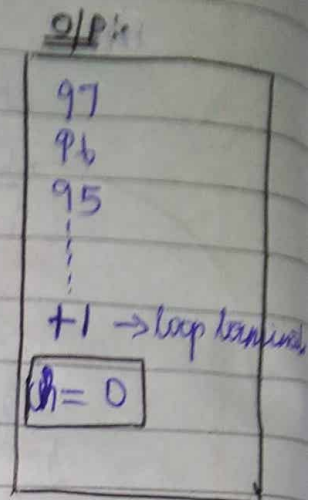 O/P:
97
96
95
+1 → loop terminates
ch = 0